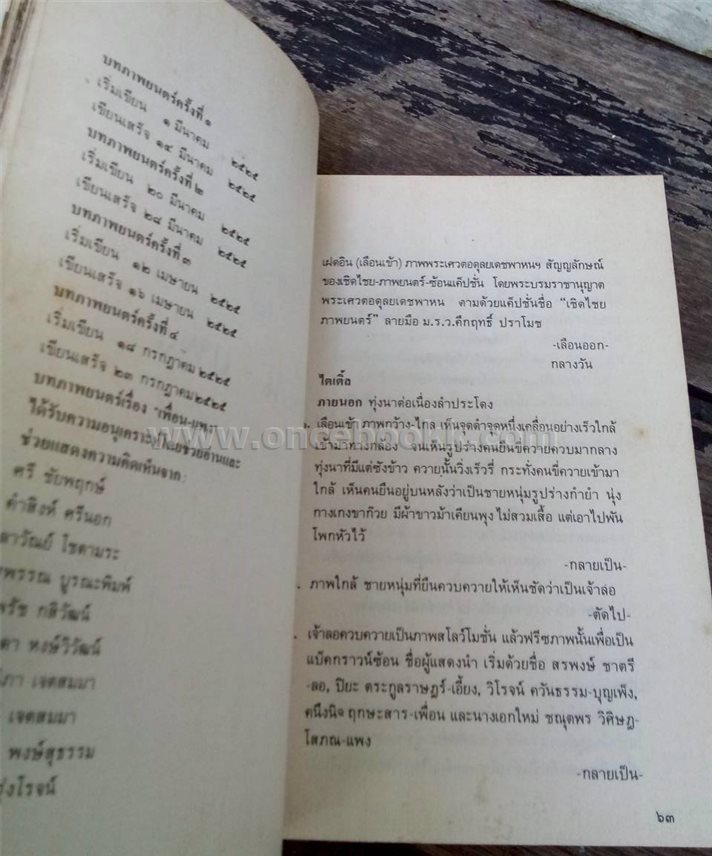 บทภาพยนตร์ครั้งที่ ๑
เริ่มเขียน ๑ มีนาคม ๒๕๒๕
เขียนเสร็จ ๑๔ มีนาคม ๒๕๒๕
บทภาพยนตร์ครั้งที่ ๒
เริ่มเขียน ๒๐ มีนาคม ๒๕๒๕
เขียนเสร็จ ๒๘ มีนาคม ๒๕๒๕
บทภาพยนตร์ครั้งที่ ๓
เริ่มเขียน ๑๒ เมษายน ๒๕๒๕
เขียนเสร็จ ๑๖ เมษายน ๒๕๒๕
บทภาพยนตร์ครั้งที่ ๔
เริ่มเขียน ๑๘ กรกฎาคม ๒๕๒๕
เขียนเสร็จ ๒๓ กรกฎาคม ๒๕๒๕
บทภาพยนตร์เรื่อง "เพื่อน-แพง"
ได้รับความอนุเคราะห์ไปช่วยอ่านและ
ช่วยแสดงความคิดเห็นจาก:
ศรี ชัยพฤกษ์
คำสิงห์ ศรีนอก
ลาวัณย์ โชตามระ
พรรณ บูรณะพิมพ์
กสิวัฒน์
หงษ์วิวัฒน์
เจตสมมา
เจตสมมา
พงษ์สุธรรม
รุ่งโรจน์
เฝดอิน (เลือนเข้า) ภาพพระเศวตอดุลยเดชพาหนฯ สัญญลักษณ์
ของเชิดไชย-ภาพยนตร์-ซ้อนแค็ปชั่น โดยพระบรมราชานุญาต
พระเศวตอดุลยเดชพาหน ตามด้วยแค็ปชั่นชื่อ "เชิดไชย
ภาพยนตร์" ลายมือ ม.ร.ว.คึกฤทธิ์ ปราโมช
-เลือนออก-
กลางวัน
ไตเติ้ล
ภายนอก ทุ่งนาต่อเนื่องลำประโดง
เลือนเข้า ภาพกว้าง-ไกล เห็นจุดดำจุดหนึ่งเคลื่อนอย่างเร็วใกล้
เข้ามาทางกล้อง จนเห็นรูปร่างคนยืนขี่ควายควบมากลาง
ทุ่งนาที่มีแต่ซังข้าว ควายนั้นวิ่งเร็วรี่ กระทั่งคนขี่ควายเข้ามา
ใกล้ เห็นคนยืนอยู่บนหลังว่าเป็นชายหนุ่มรูปร่างกำยำ นุ่ง
กางเกงขาก๊วย มีผ้าขาวม้าเคียนพุง ไม่สวมเสื้อ แต่เอาไปพัน
โพกหัวไว้
-กลายเป็น-
ภาพใกล้ ชายหนุ่มที่ยืนควบควายให้เห็นชัดว่าเป็นเจ้าลอ
-ตัดไป-
เจ้าลอควบควายเป็นภาพสโลว์โมชั่น แล้วฟรีซภาพนั้นเพื่อเป็น
แบ็คกราวน์ซ้อน ชื่อผู้แสดงนำ เริ่มด้วยชื่อ สรพงษ์ ชาตรี
-ลอ, ปิยะ ตระกูลราษฎร์-เอี้ยง, วิโรจน์ ควันธรรม-บุญเพ็ง,
คนึงนิจ ฤกษะสาร-เพื่อน และนางเอกใหม่ ชณุตพร วิศิษฏ
โสภณ-แพง
-กลายเป็น-
๖๓
www.oncebookk.com